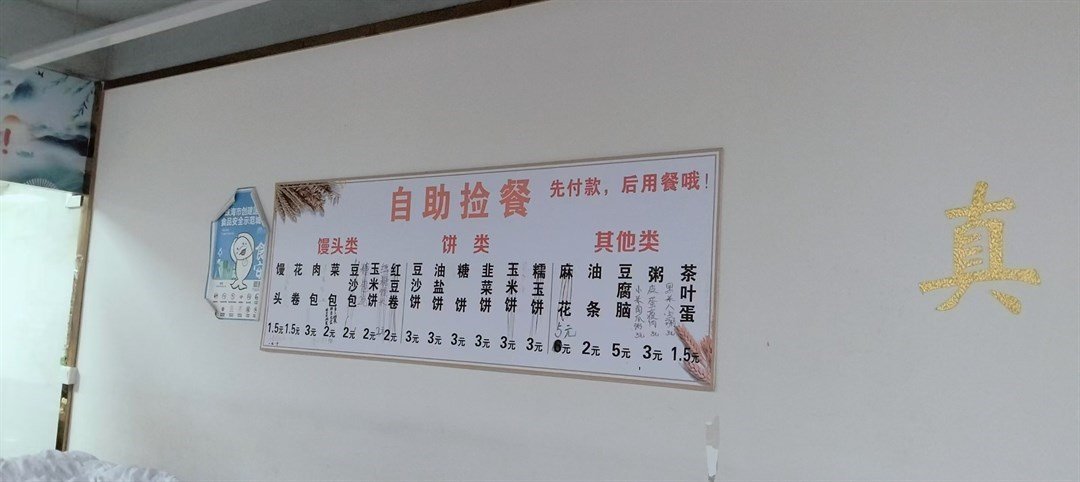 自助捡餐 先付款，后用餐哦！
馒头类 饼类 其他类
馒头 1.5元
花卷 1.5元
肉包 3元
菜包 2元
豆沙包 2元
玉米饼 2元
红豆卷 2元
豆沙饼 3元
油盐饼 3元
糖饼 3元
韭菜饼 3元
玉米饼 3元
糯玉饼 3元
麻花 5元
油条 2元
豆腐脑 5元
粥 3元
小米南瓜粥3元
皮蛋瘦肉3元
茶叶蛋 1.5元
珠海市创建国
食品安全示范城
真